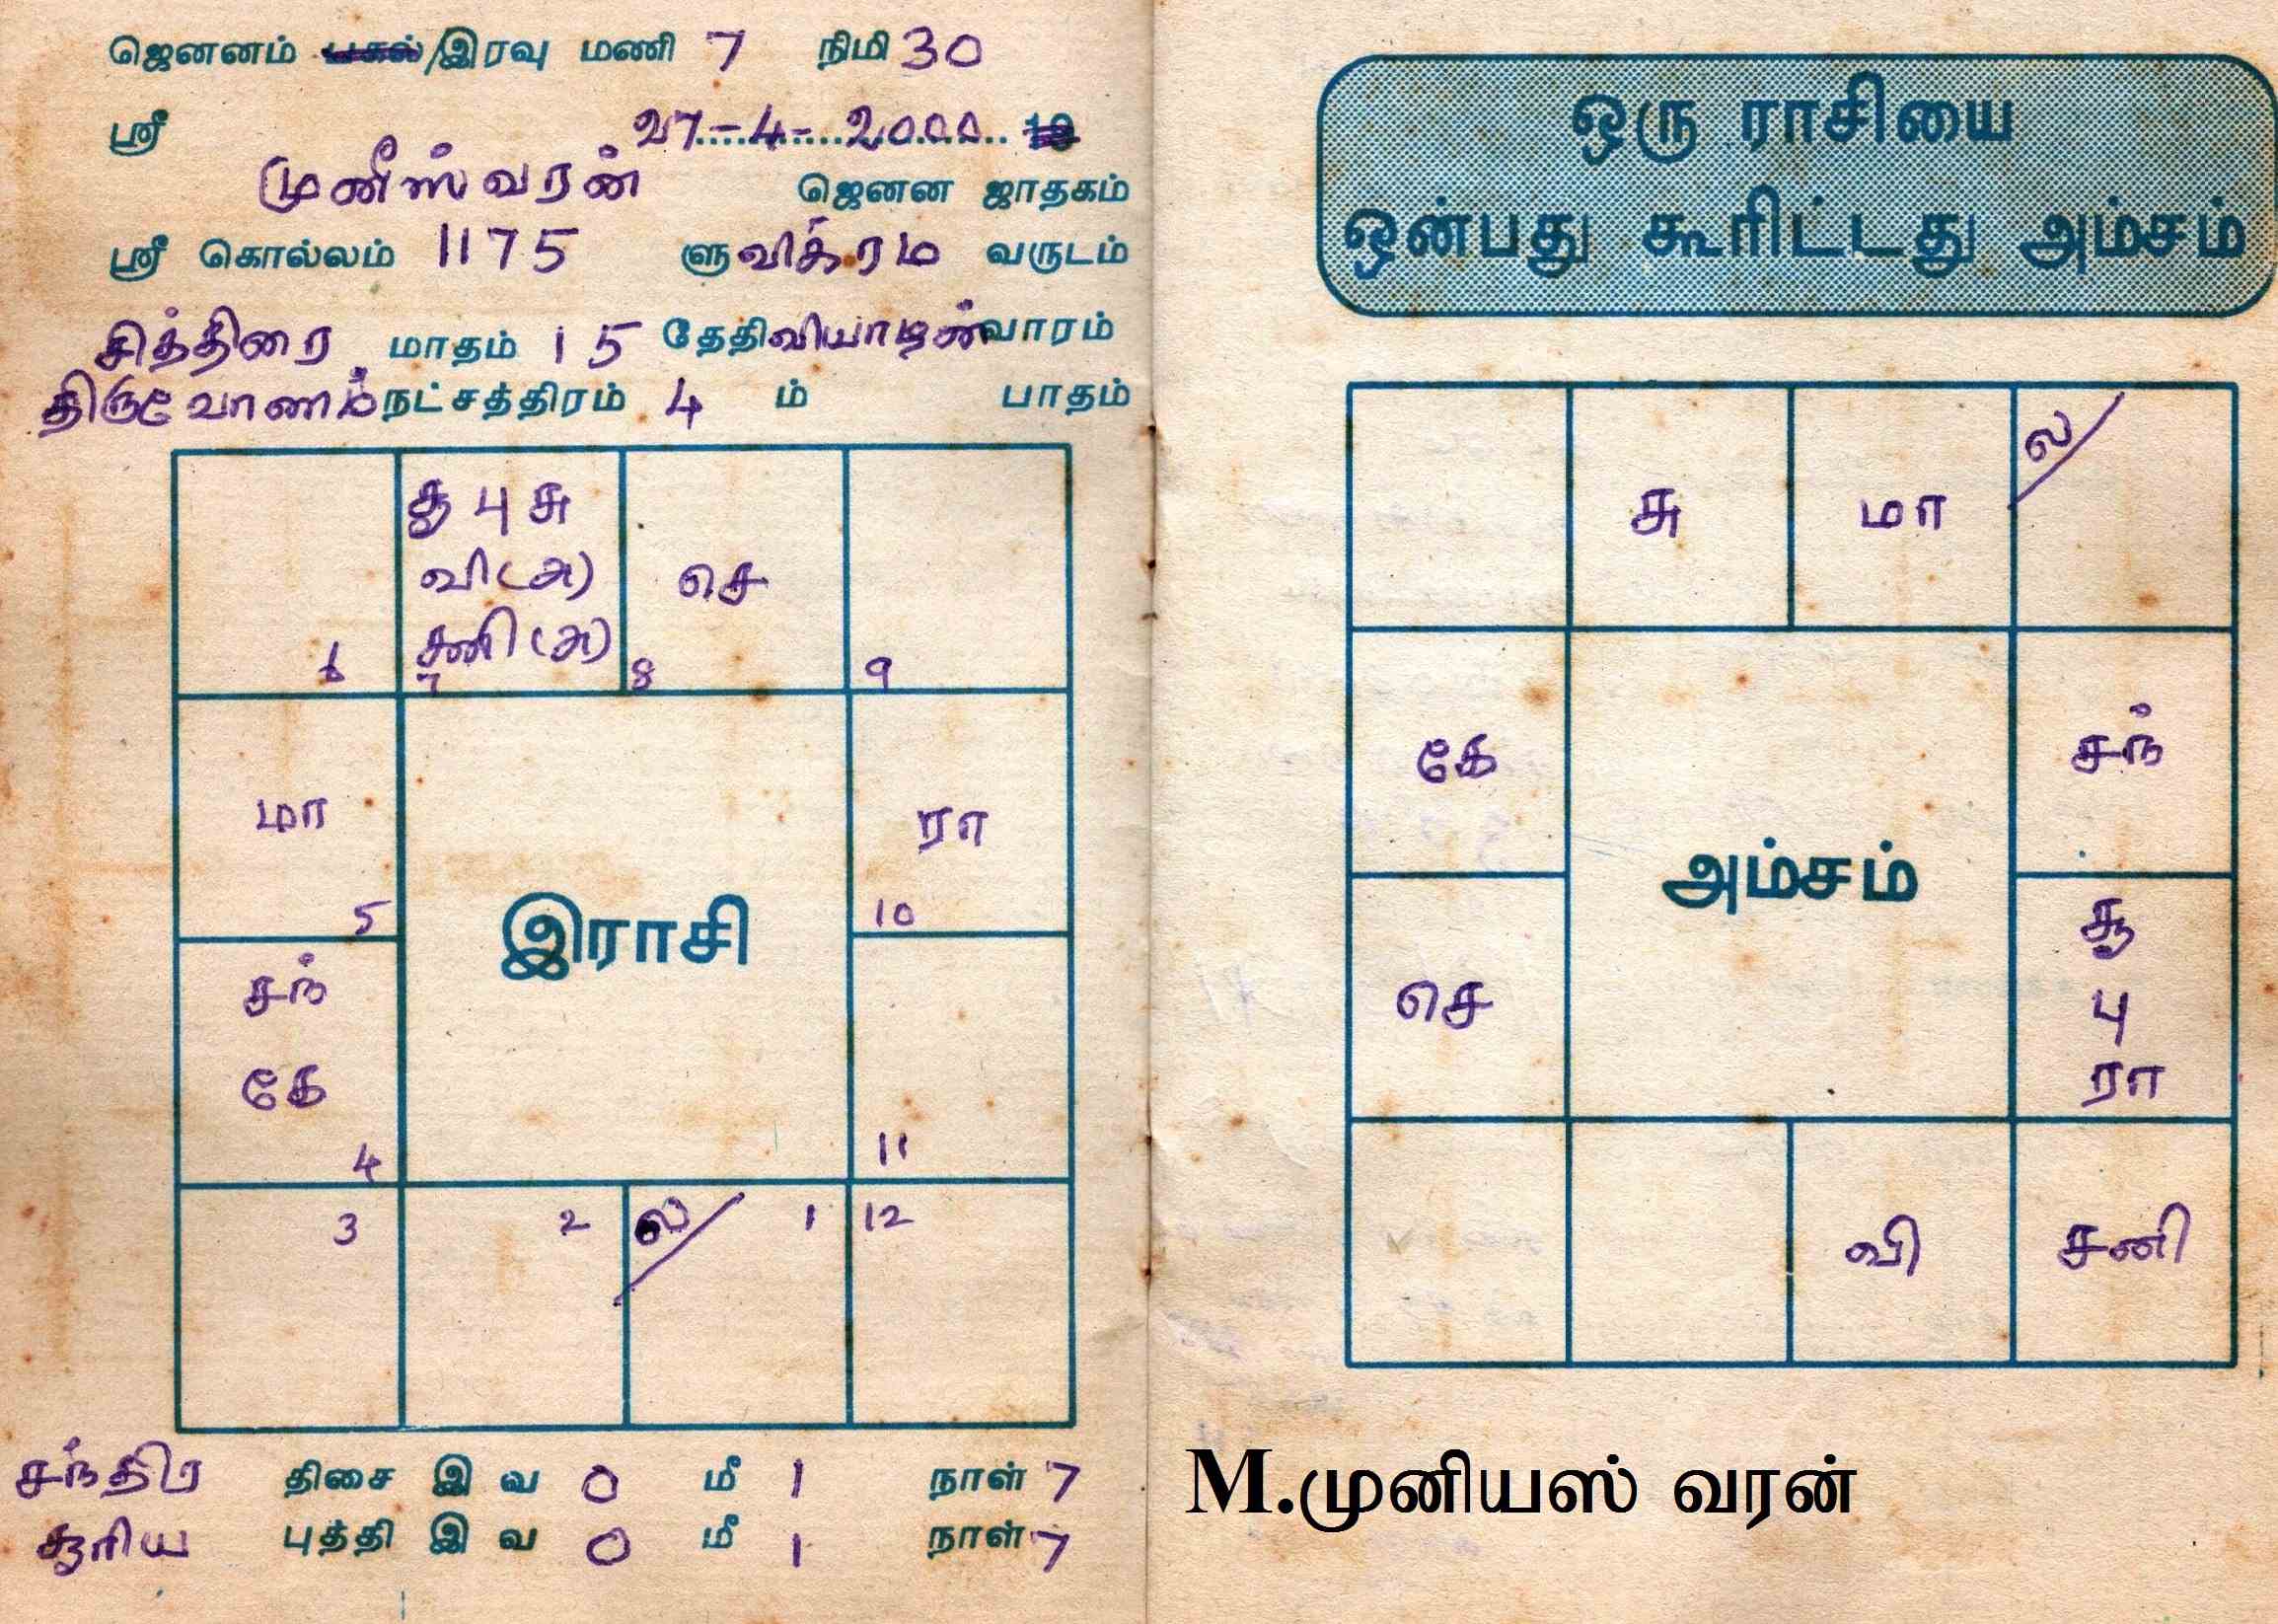 ஜெனனம் பகல்/இரவு மணி 7 நிமி 30
ஸ்ரீ 27-4-2000 19
முனீஸ்வரன் ஜெனன ஜாதகம்
ஸ்ரீ கொல்லம் 1175 ளு விக்ரம வருடம்
சித்திரை மாதம் 15 தேதி வியாழன் வாரம்
திருவோணம் நட்சத்திரம் 4 ம் பாதம்
சூ பு சு
வி(அ)
சனி(அ)
செ
6
7
8
9
மா
ரா
5
10
இராசி
சந்
கே
4
11
3
2
ல/
1
12
சந்திர திசை இ வ 0 மீ 1 நாள் 7
சூரிய புத்தி இ வ 0 மீ 1 நாள் 7
ஒரு ராசியை
ஒன்பது கூரிட்டது அம்சம்
சு
மா
ல/
கே
சந்
அம்சம்
செ
சூ
பு
ரா
வி
சனி
M.முனியஸ் வரன்